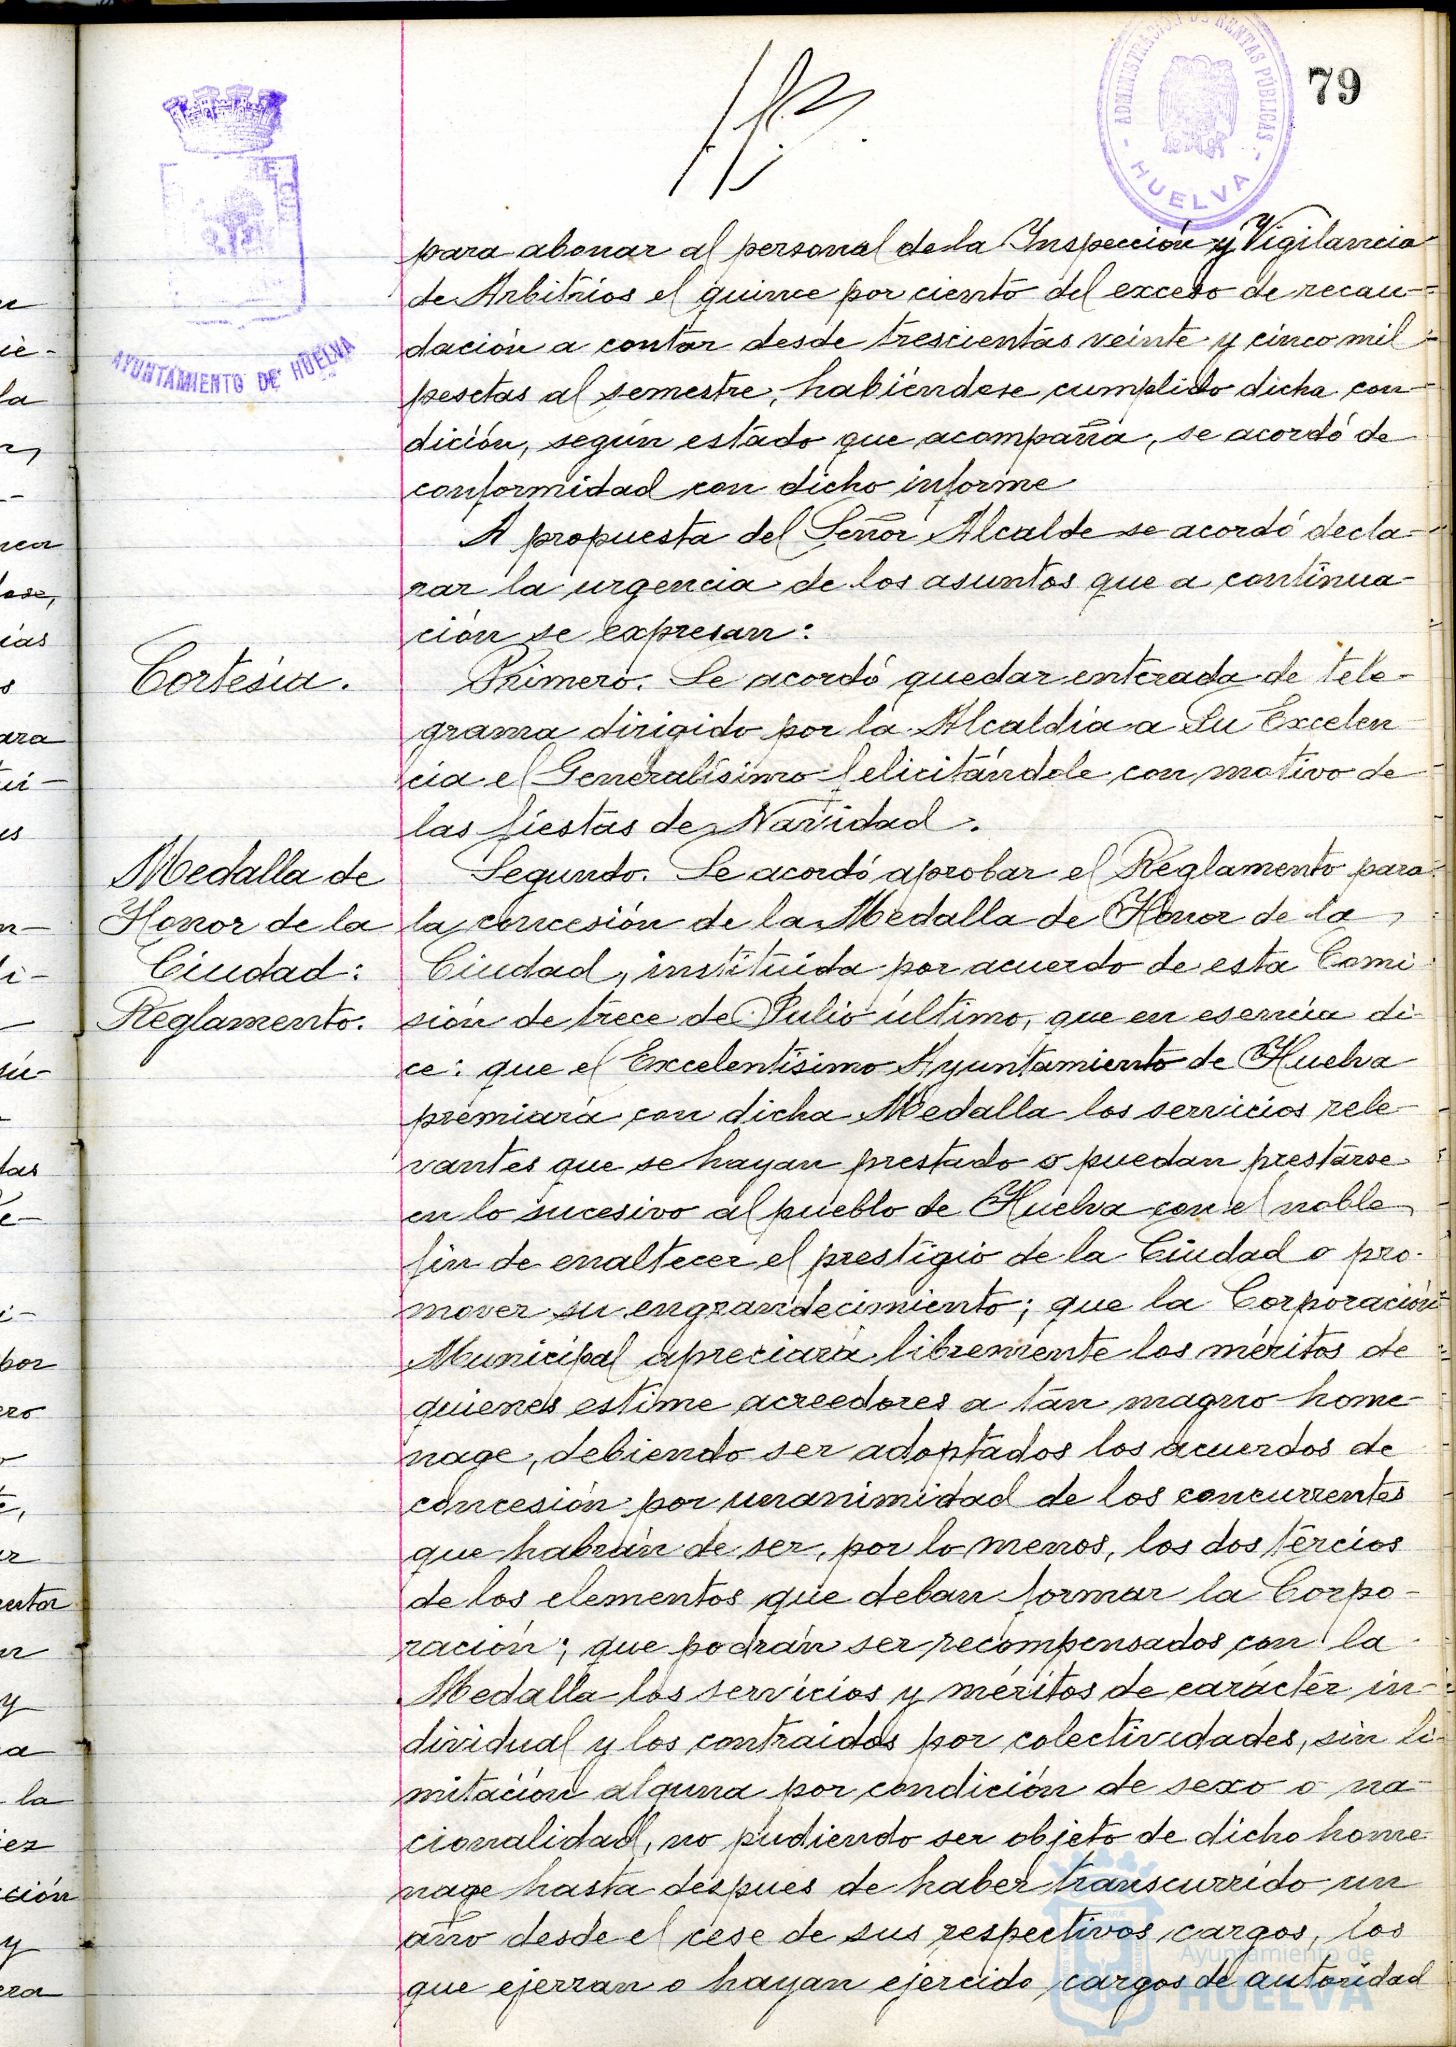 79
ADMINISTRACIÓN DE RENTAS PÚBLICAS
- HUELVA -
AYUNTAMIENTO DE HUELVA
para abonar al personal de la Inspección y Vigilancia
de Arbitrios el quince por ciento del exceso de recau-
dación a contar desde trescientas veinte y cinco mil
pesetas al semestre, habiéndose cumplido dicha con
dición, según estado que acompaña, se acordó de
conformidad con dicho informe
A propuesta del Señor Alcalde se acordó decla-
rar la urgencia de los asuntos que a continua-
ción se expresan:
Cortesía.
Primero. Se acordó quedar enterada de tele-
grama dirigido por la Alcaldía a Su Excelen
cia el Generalísimo felicitándole con motivo de
las fiestas de Navidad.
Medalla de
Honor de la
Ciudad:
Reglamento.
Segundo. Se acordó aprobar el Reglamento para
la concesión de la Medalla de Honor de la
Ciudad, instituida por acuerdo de esta Comi
sión de trece de Julio último, que en esencia di-
ce: que el Excelentísimo Ayuntamiento de Huelva
premiará con dicha Medalla los servicios rele-
vantes que se hayan prestado o puedan prestarse
en lo sucesivo al pueblo de Huelva con el noble
fin de enaltecer el prestigio de la Ciudad o pro-
mover su engrandecimiento; que la Corporación
Municipal apreciará libremente los méritos de
quienes estime acreedores a tan magno home-
nage, debiendo ser adoptados los acuerdos de
concesión por unanimidad de los concurrentes
que habrán de ser, por lo menos, los dos tercios
de los elementos que deban formar la Corpo-
ración; que podrán ser recompensados con la
Medalla los servicios y méritos de carácter in-
dividual y los contraidos por colectividades, sin li-
mitación alguna por condición de sexo o na-
cionalidad, no pudiendo ser objeto de dicho home-
nage hasta después de haber transcurrido un
año desde el cese de sus respectivos cargos, los
que ejerzan o hayan ejercido cargos de autoridad
Ayuntamiento de
HUELVA